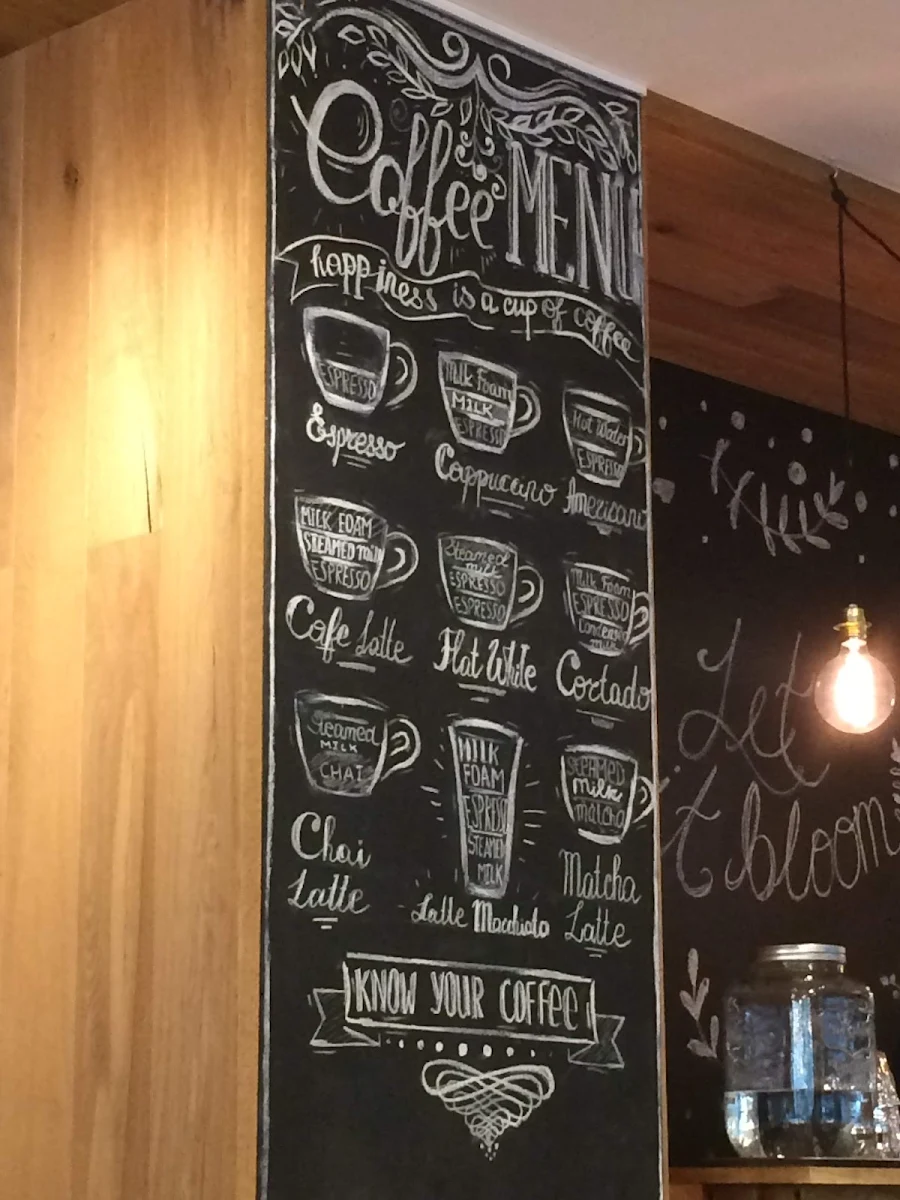 Coffee MENU
happiness is a cup of coffee
ESPRESSO
Espresso
Milk Foam
MILK
ESPRESSO
Cappuccino
Hot Water
ESPRESSO
Americano
MILK FOAM
STEAMED milk
ESPRESSO
Cafe Latte
Steamed
milk
ESPRESSO
ESPRESSO
Flat White
Milk Foam
ESPRESSO
Condensed
milk
Cortado
Steamed
MILK
CHAI
Chai
Latte
MILK
FOAM
ESPRESSO
STEAMED
MILK
Latte Macchiato
STEAMED
Milk
matcha
Matcha
Latte
KNOW YOUR COFFEE!
Let
it bloom